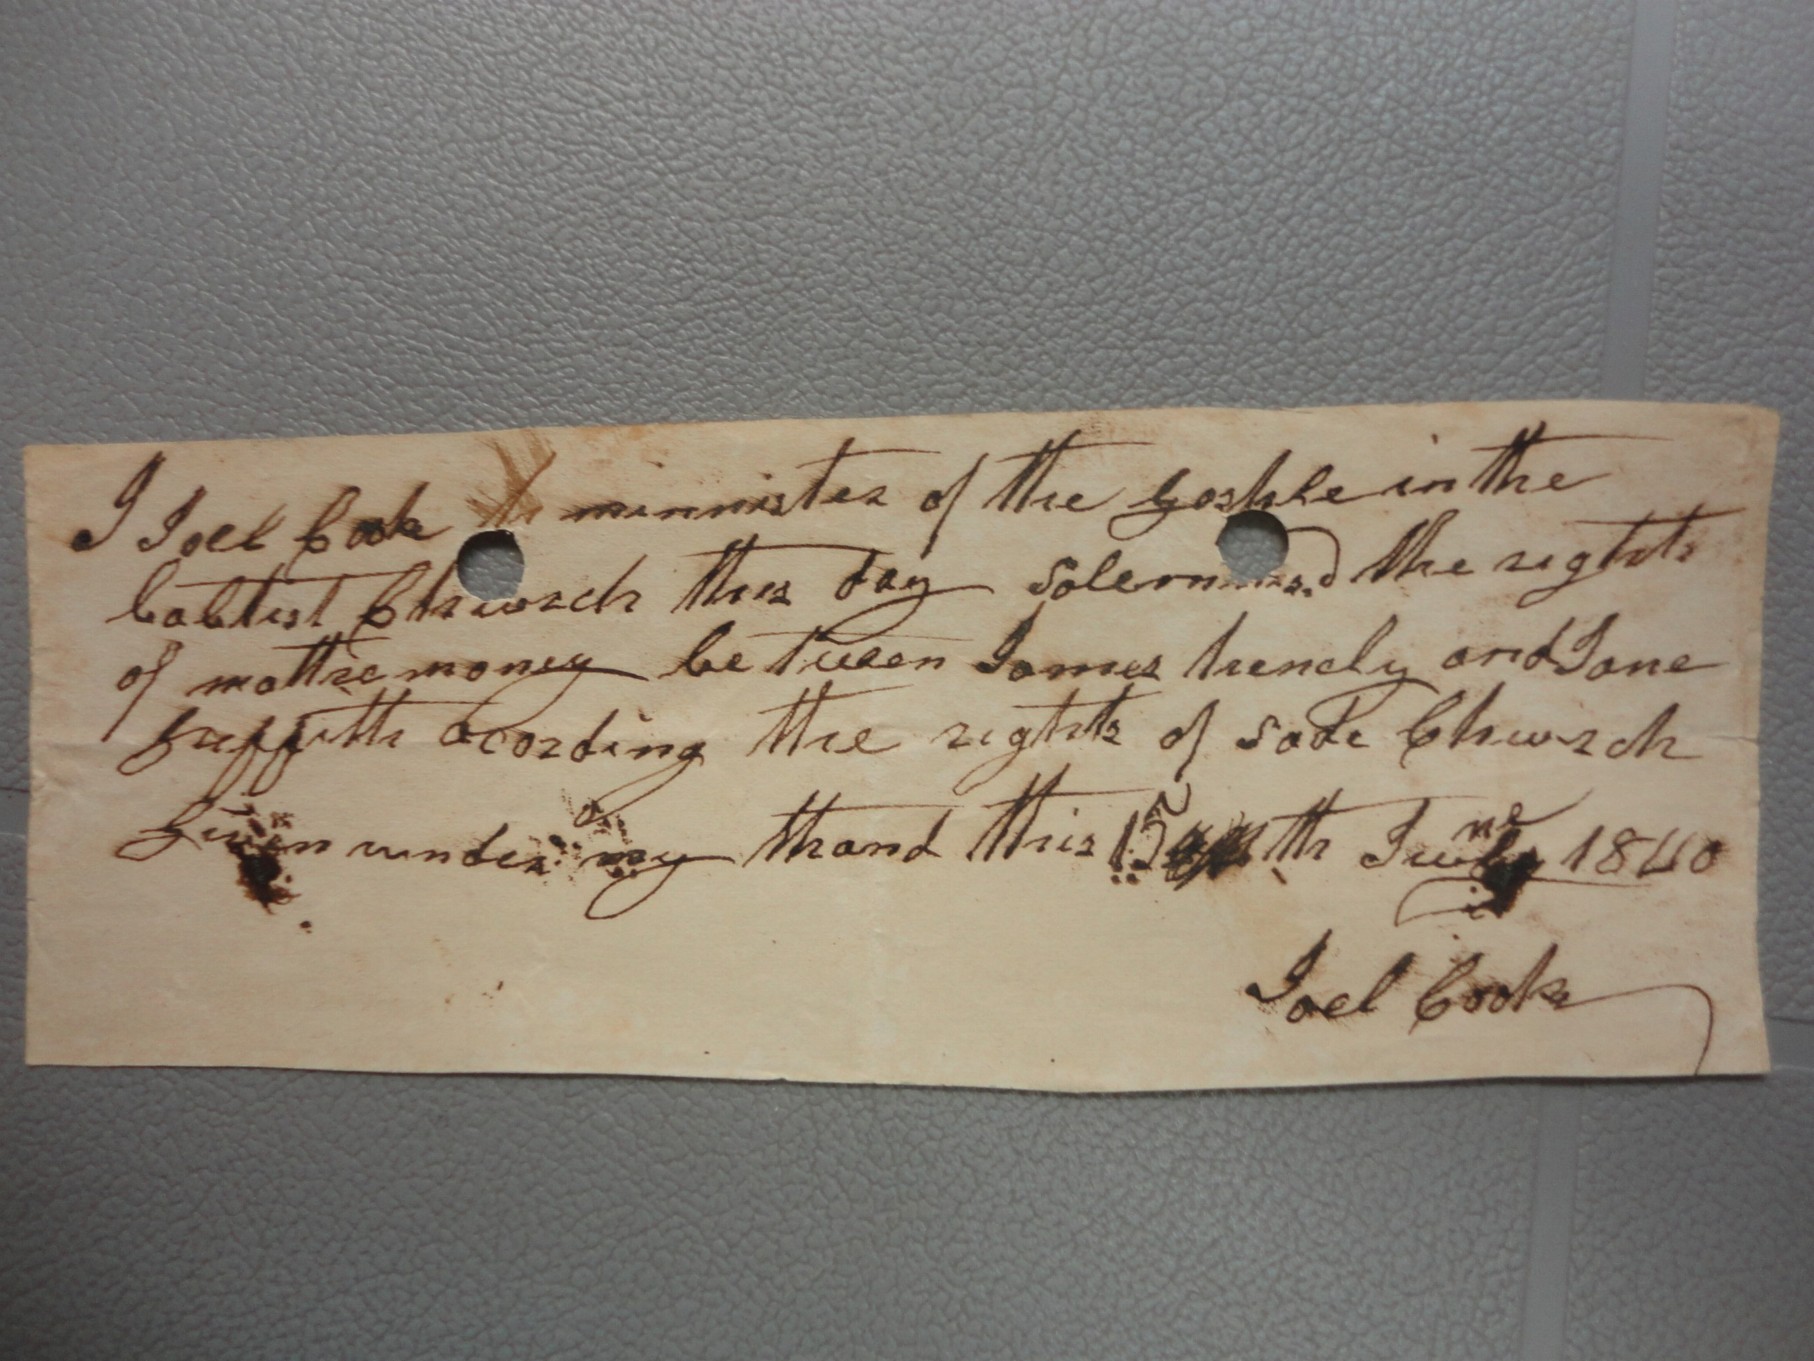 I Joel Cook minnister of the gosple in the
babtist Church this day solemnised the rights
of mattremoney between James hendly and Jane
griffith acording the rights of sade Church
given under my hand this 15th June 1840
Joel Cook